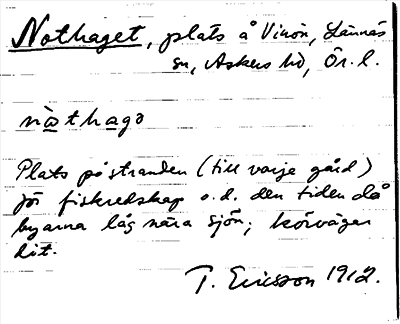 Nothaget, plats å Vinön, Lännäs
sn, Askers hd, Ör. l.
nòthago
Plats på stranden (till varje gård)
för fiskredskap o.d. den tiden då
byarna låg nära sjön; körvägar
dit.
T. Ericsson 1912.